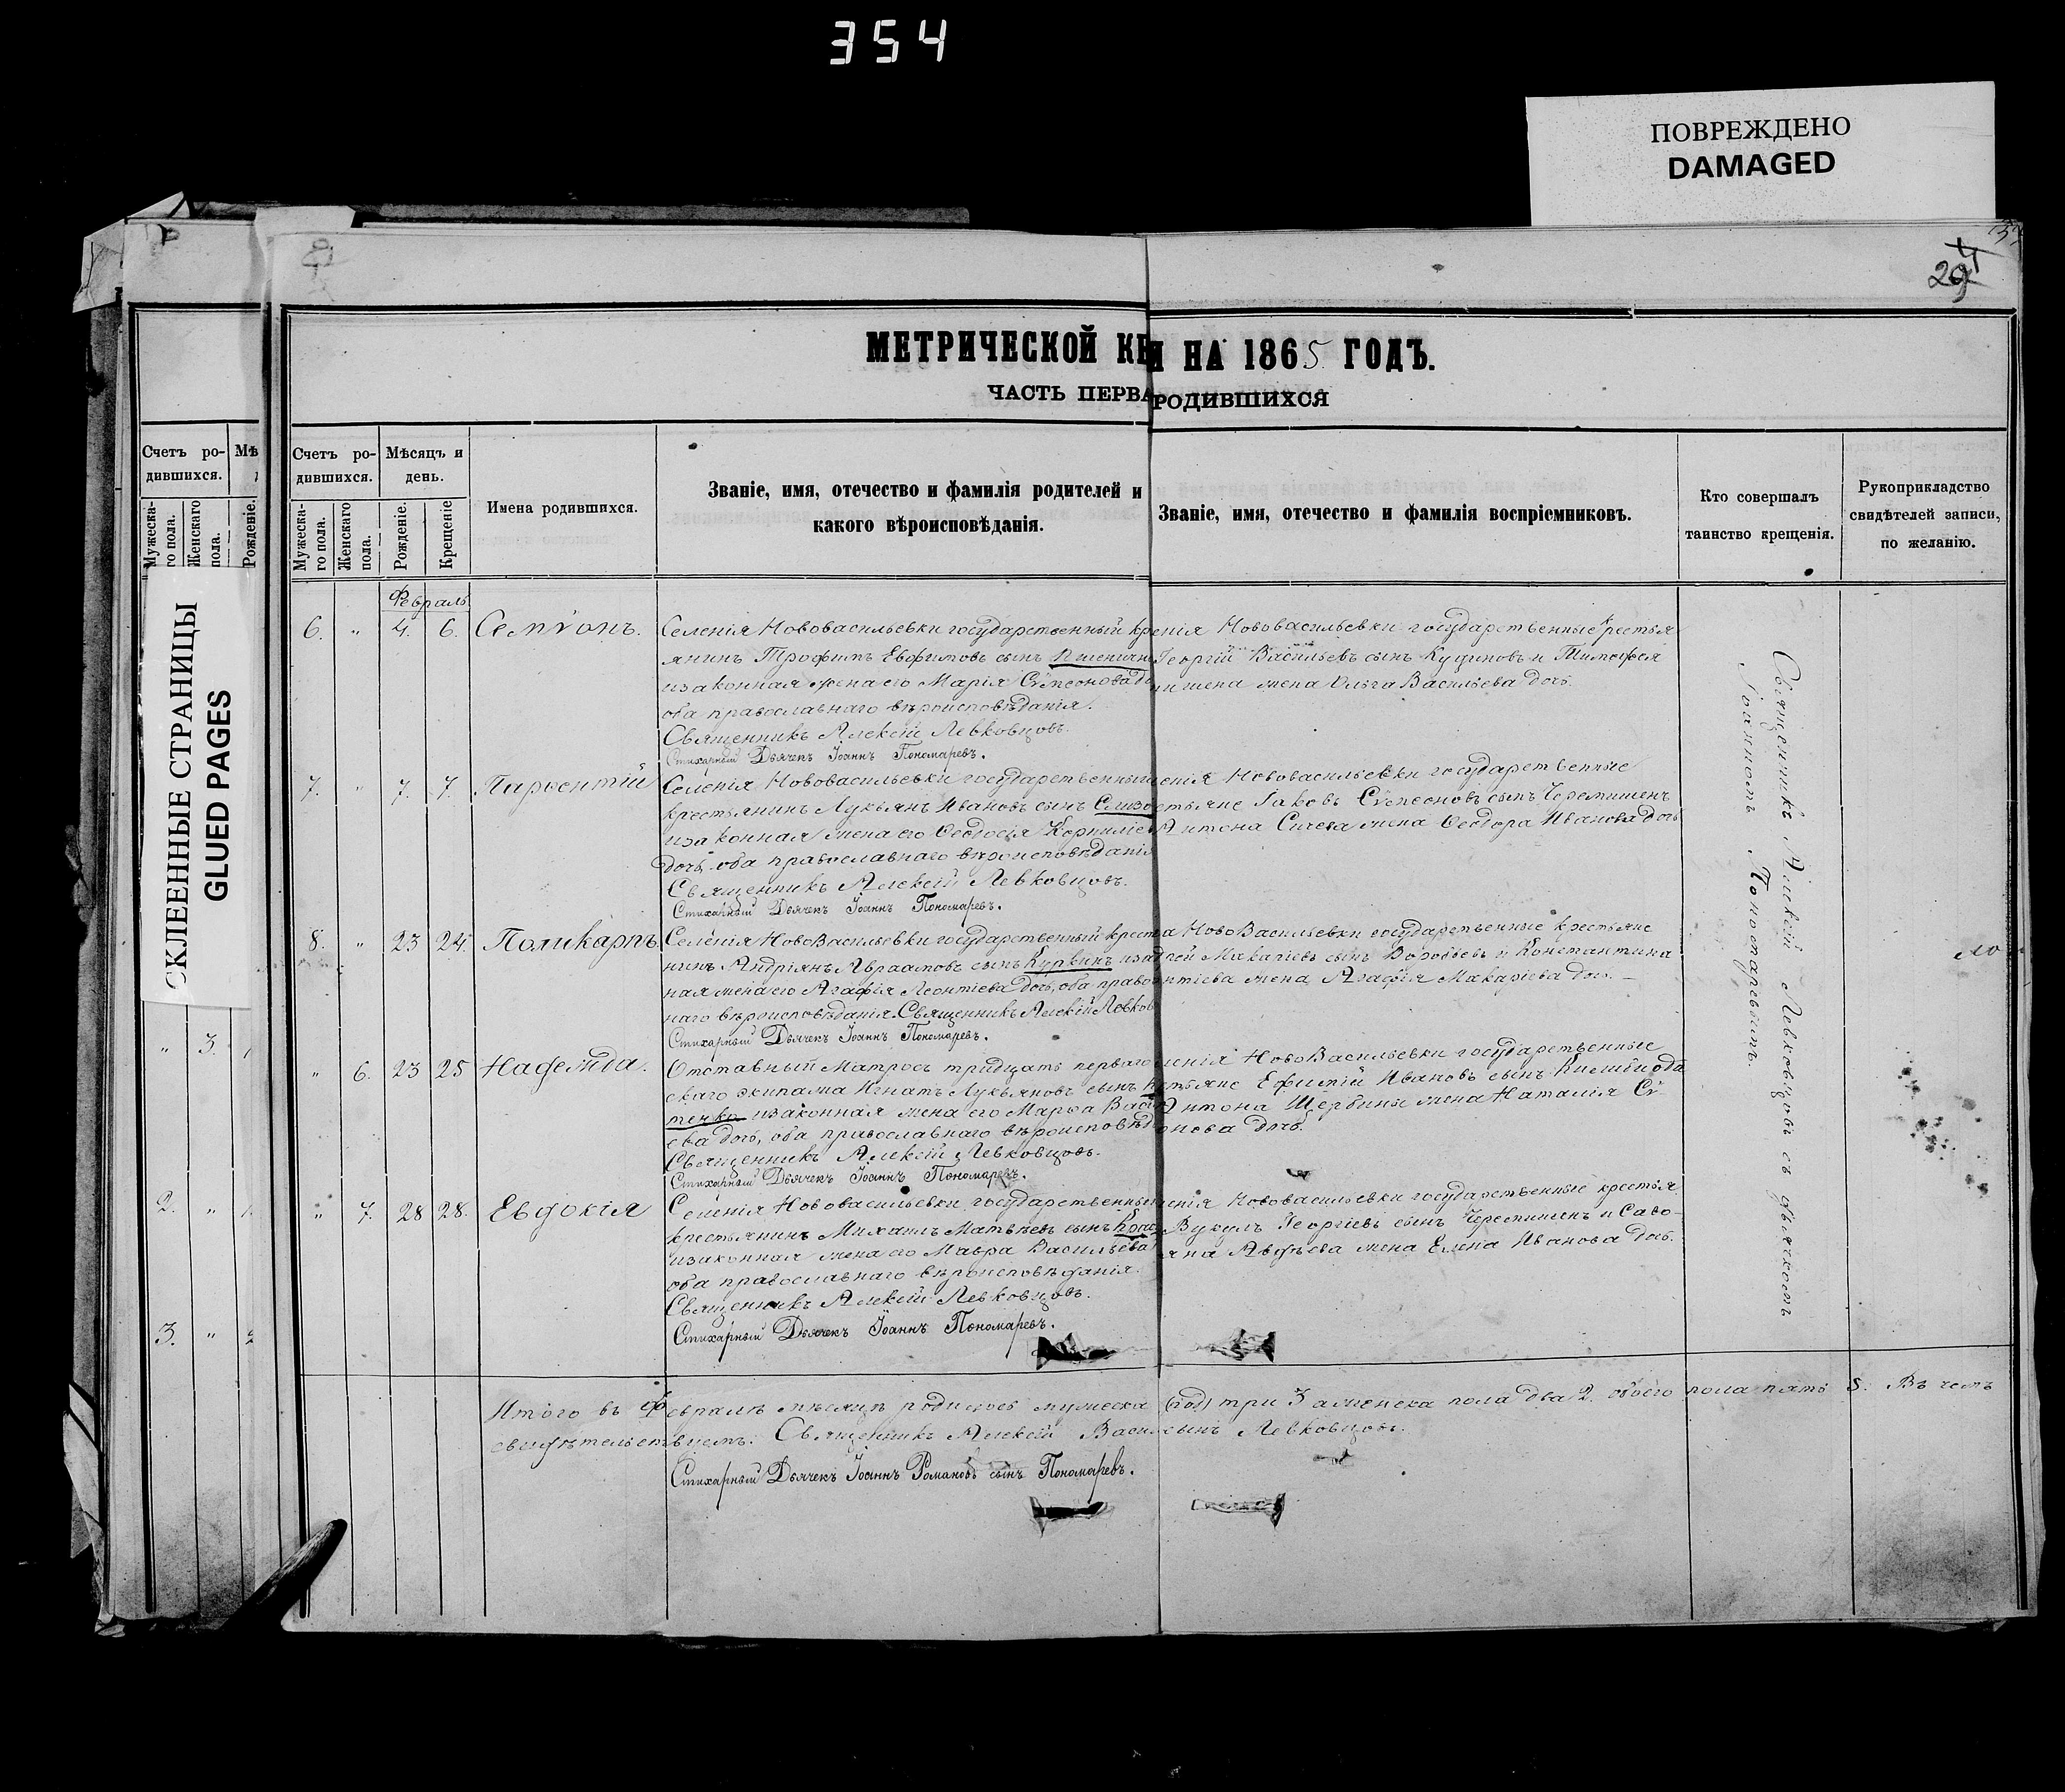 354
ПОВРЕЖДЕНО
DAMAGED
29
МЕТРИЧЕСКОЙ КН
И НА 1865 ГОДЪ.
ЧАСТЬ ПЕРВА
РОДИВШИХСЯ
Счетъ ро-
дившихся.
Мѣ
Мужеска-
го пола.
Женскаго
пола.
Рожденіе.
СКЛЕЕННЫЕ СТРАНИЦЫ
GLUED PAGES
" 3.
2. "
3. "
Счетъ ро-
дившихся.
Мѣсяцъ и
день.
Мужеска-
го пола.
Женскаго
пола.
Рожденіе.
Крещеніе
Имена родившихся.
Званіе, имя, отечество и фамилія родителей и
какого вѣроисповѣданія.
Званіе, имя, отечество и фамилія воспріемниковъ.
Кто совершалъ
таинство крещенія.
Рукоприкладство
свидѣтелей записи,
по желанію.
Февраль
6. " 4. 6. Семѵонъ.
Селенія Нововасильевки государственный кре
янинъ Трофимъ Евфимовъ сынъ Пшеничн
изаконная жена его Марія Сѵмеонова до
оба православнаго вѣроисповѣданія.
Священникъ Алексій Левковцовъ.
Стихарный Дьячекъ Іоаннъ Пономаревъ.
енія Нововасильевки государственные крестья
Георгій Васильевъ сынъ Куциновъ и Тимофея
жена Ольга Васильева дочь.
7. " 7. 7. Парѳентій
Селенія Нововасильевки государственный
крестьянинъ Лукьянъ Ивановъ сынъ Слизо
изаконная жена его Ѳеодосія Корниліе
дочь оба православнаго вѣроисповѣданія
Священникъ Алексій Левковцовъ.
Стихарный Дьячекъ Іоаннъ Пономаревъ.
енія Нововасильевки государственные
стьяне Іаковъ Сѵмеоновъ сынъ Черемишенъ
Антона Сичева жена Ѳеодора Иванова дочь
8. " 23 24. Поликарпъ
Селенія НовоВасильевки государственный крест
нинъ Андріянъ Авраамовъ сынъ Курвинъ иза
ная жена его Агафія Леонтіева дочь, оба право
наго вѣроисповѣданія. Священникъ Алексій Левков
Стихарный Дьячекъ Іоаннъ Пономаревъ.
а НовоВасильевки государственные крестьяне
Макаріевъ сынъ Воробьевъ и Константина
нтіева жена Агафія Макаріева дочь.
" 6. 23 25 Надежда.
Отставный Матросъ тридцать перваго
скаго экипажа Игнатъ Лукьяновъ сынъ
тенко изаконная жена его Марѳа Васи
ева дочь, оба православнаго вѣроисповѣд
Священникъ Алексій Левковцовъ.
Стихарный Дьячекъ Іоаннъ Пономаревъ.
енія НовоВасильевки государственные
стьяне Ефимій Ивановъ сынъ
Антона Щербины жена Наталія Сѵ
онова дочь.
" 7. 28 28. Евдокія
Селенія Нововасильевки государственный
крестьянинъ Михаилъ Матвѣевъ сынъ
изаконная жена его Мавра Васильева
оба православнаго вѣроисповѣданія.
Священникъ Алексій Левковцовъ.
Стихарный Дьячекъ Іоаннъ Пономаревъ.
енія Нововасильевки государственные крестья
Вукулъ Георгіевъ сынъ Черемишенъ и Саво-
яна Авдѣева жена Елена Иванова дочь.
Священникъ Алексій Левковцовъ съ дьячкомъ
Іоанномъ Пономаревымъ.
Итого въ Февралѣ мѣсяцѣ родилось мужеска три 3 а женска пола два 2. обоего пола пять 5. Въ чемъ
свидѣтельствуемъ: Священникъ Алексій Васи сынъ Левковцовъ.
Стихарный Дьячекъ Іоаннъ Романовъ сынъ Пономаревъ.